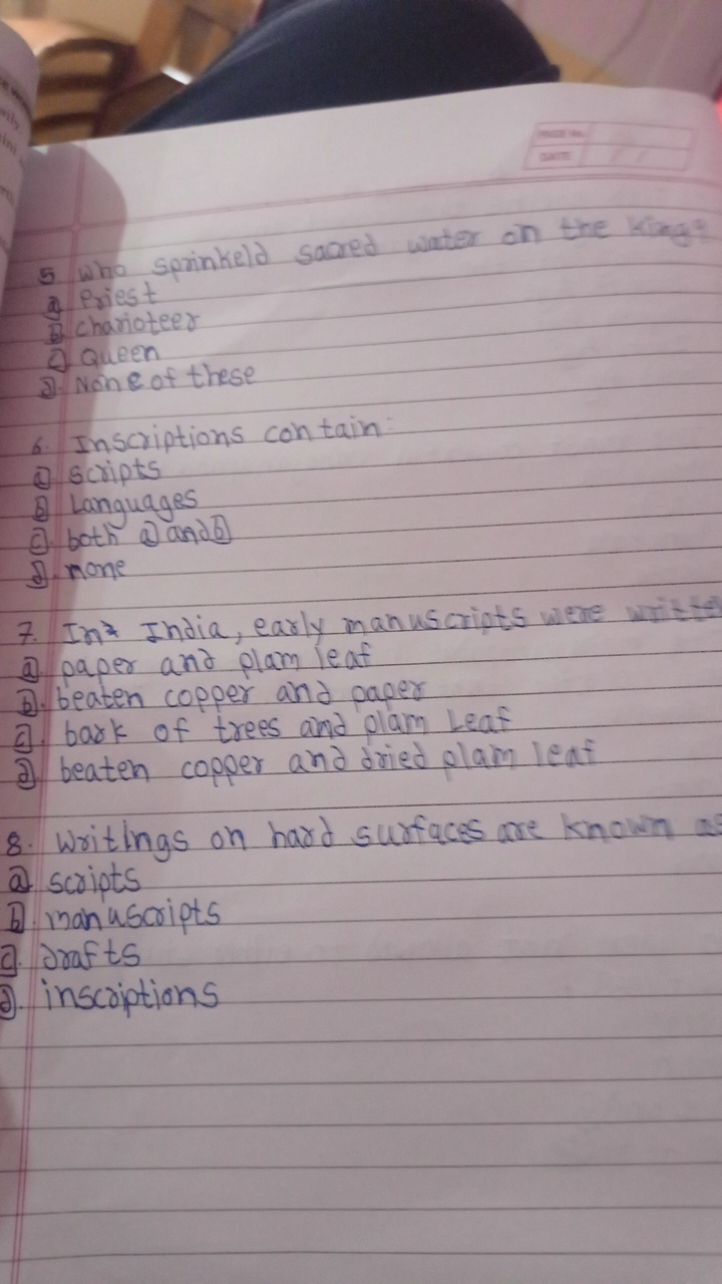 PAGE No.
DATE
5 who sprinkeld sacred water on the King?
a Priest
b charioteer
c Queen
d. None of these
6. Inscriptions contain:
a scripts
b Languages
c. both a and b
d. none
7. In India, early manuscripts were written
a paper and plam leaf
b. beaten copper and paper
c. bark of trees and plam Leaf
d beaten copper and dried plam leaf
8. Writings on hard surfaces are known as
a scripts
b. manuscripts
c. drafts
d. inscriptions